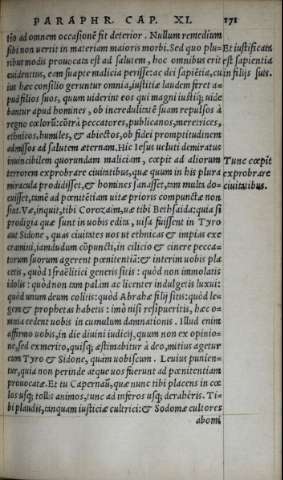 PARAPHR. CAP. XI. 171
tio ad omnem occasionẽ fit deterior. Nullum remedium
sibi non uertit in materiam maioris morbi. Sed quo plu- Et iustificata
ribus modis prouocata est ad salutem, hoc omnibus erit est sapientia
euidentius, eam suapte malicia perisse: ac dei sapiẽtia, cu in filijs suis.
ius hæc consilio geruntur omnia, iustitiæ laudem feret a-
pud filios suos, quum uiderint eos qui magni iustiq; uide
bantur apud homines, ob incredulitatẽ suam repulsos à
regno cœlorũ: cõtrà peccatores, publicanos, meretrices,
ethnicos, humiles, & abiectos, ob fidei promptitudinem
admissos ad salutem æternam. Hic Iesus ueluti demiratus
inuincibilem quorundam maliciam, cœpit ad aliorum Tunc cœpit
terrorem exprobrare ciuitatibus, quæ quum in his plura exprobrare
miracula prodidisset, & homines sanasset, tum multa do- ciuitatibus.
cuisset, tamẽ ad pœnitẽtiam uitæ prioris compunctæ non
sint. Væ, inquit, tibi Corozaim, uæ tibi Bethsaida: quia si
prodigia quæ sunt in uobis edita, uisa fuissent in Tyro
aut Sidone, quas ciuitates uos ut ethnicas & impias exe
cramini, iamdudum cõpuncti, in cilicio & cinere pecca-
torum suorum agerent pœnitentiã: & interim uobis pla
cetis, quòd Israëlitici generis sitis: quòd non immolatis
idolis: quòd non tam palàm ac licenter indulgetis luxui:
quòd unum deum colitis: quòd Abrahæ filij sitis: quòd le-
gem & prophetas habetis: imò nisi resipueritis, hæc o-
mnia cedent uobis in cumulum damnationis. Illud enim
affirmo uobis, in die diuini iudicij, quum non ex opinio-
ne, sed ex merito, quisq; æstimabitur à deo, mitius agetur
cum Tyro & Sidone, quàm uobiscum. Leuius punien-
tur, quia non perinde atque uos fuerunt ad pœnitentiam
prouocatæ. Et tu Capernaũ, quæ nunc tibi placens in cœ
los usq; tollis animos, tunc ad inferos usq; detraheris. Ti-
bi plaudis, tanquam iusticiæ cultrici: & Sodomæ cultores
abomi